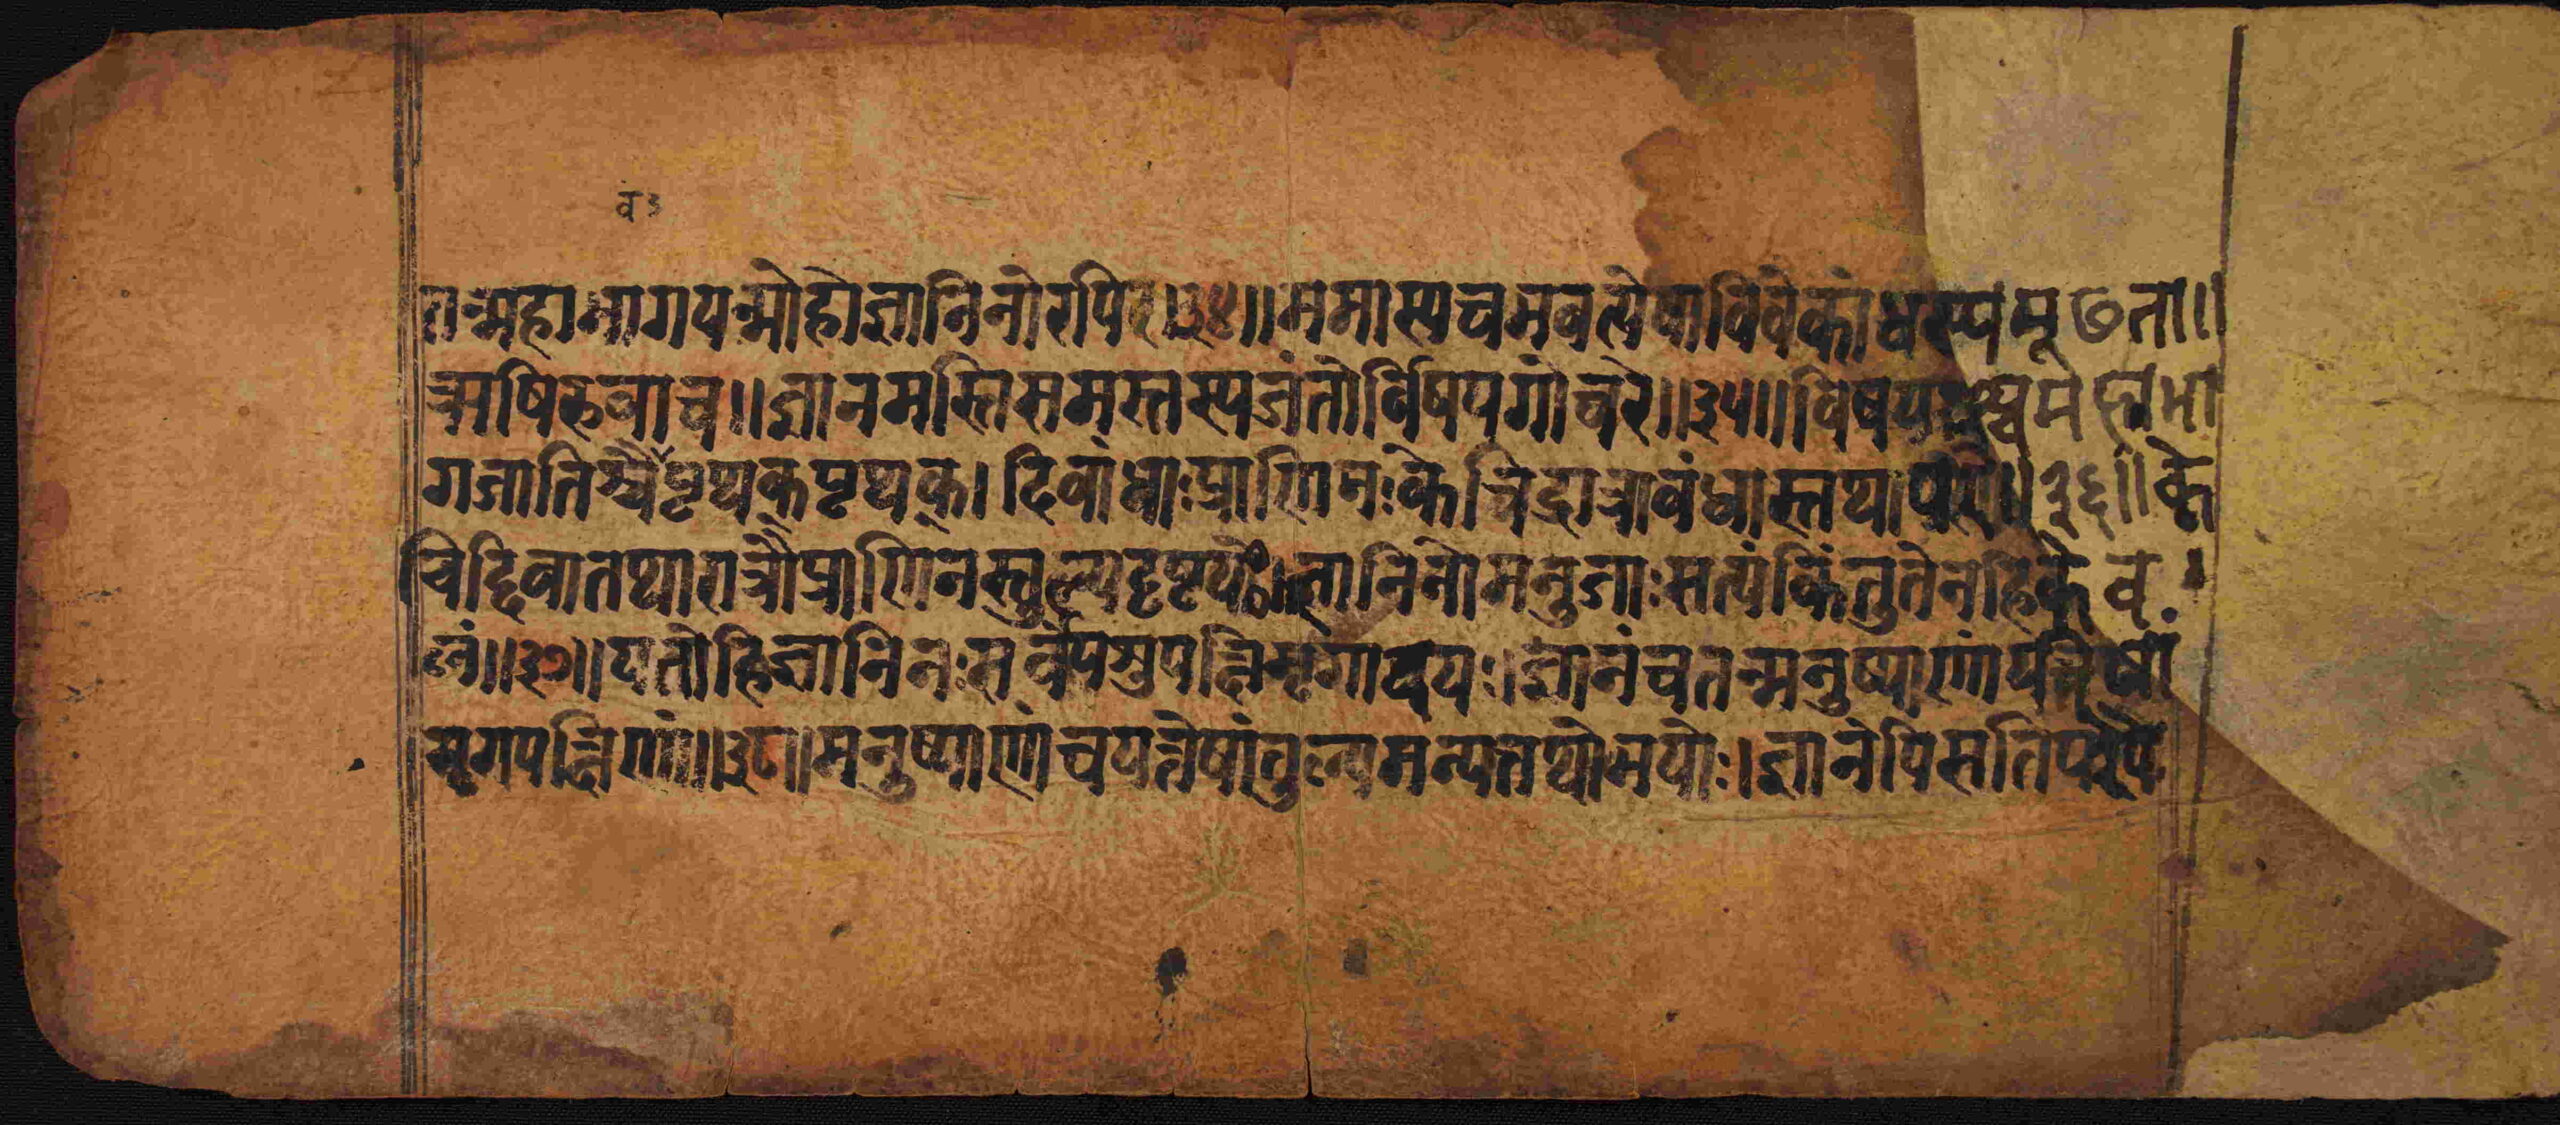 व३
तन्महाभागयन्मोहोज्ञानिनोरपि॥३४॥ममास्यचभवत्येषाविवेकांधस्यमूढता॥
ऋषिरुवाच॥ज्ञानमस्तिसमस्तस्यजंतोर्विषयगोचरे॥३५॥विषयश्चमहाभा
गजातिश्चैवंपृथक्पृथक्।दिवांधाःप्राणिनःकेचिद्रात्रावंधास्तथापरे॥३६॥के
चिद्दिवातथारात्रौप्राणिनस्तुल्यदृष्टयः।ज्ञानिनोमनुजाःसत्यंकिंतुतेनहिकेव
लं॥३७॥यतोहिज्ञानिनःसर्वेपशुपक्षिमृगादयः।ज्ञानंचतन्मनुष्याणांयत्तेषां
मृगपक्षिणां॥३८॥मनुष्याणांचयत्तेषांतुल्यमन्यत्तथोभयोः।ज्ञानेपिसतिपश्यै